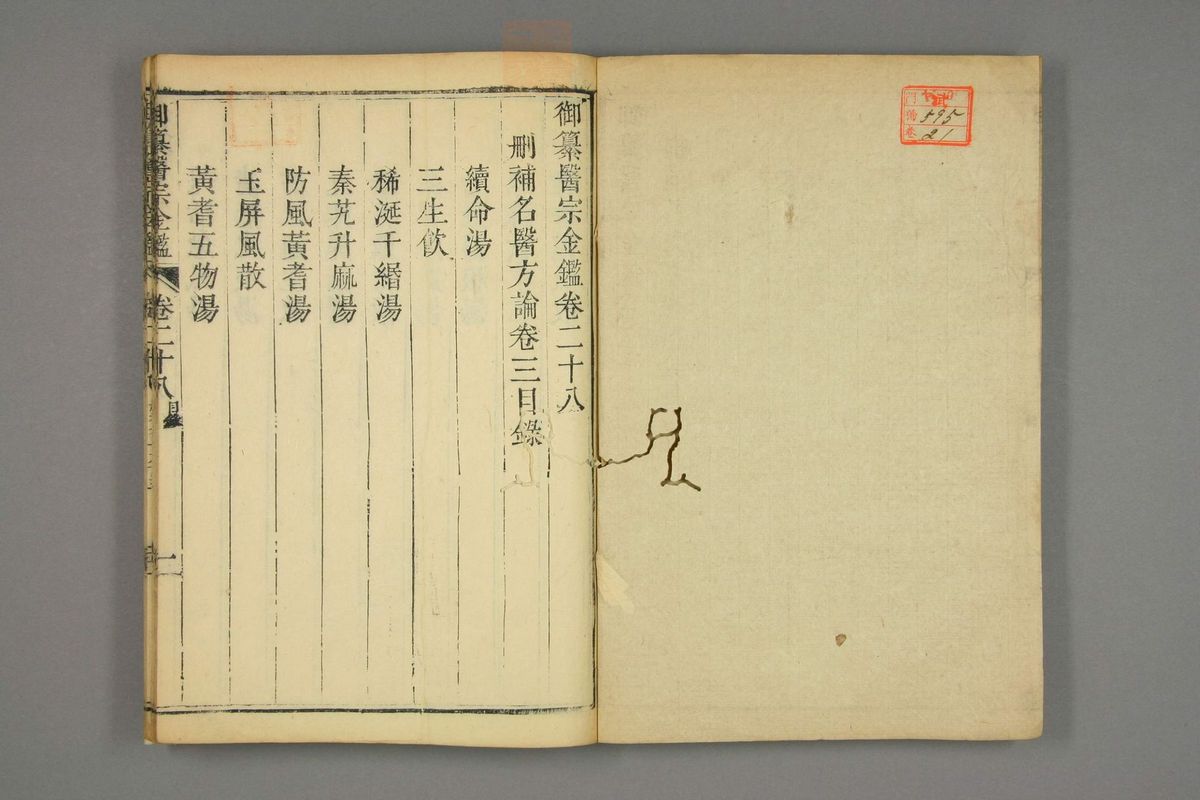 門
號 595
卷 21
御纂醫宗金鑑卷二十八
刪補名醫方論卷三目錄
續命湯
三生飲
稀涎千緡湯
秦艽升麻湯
防風黃耆湯
玉屏風散
黃耆五物湯
御纂醫宗金鑑 卷二十八 目錄 一